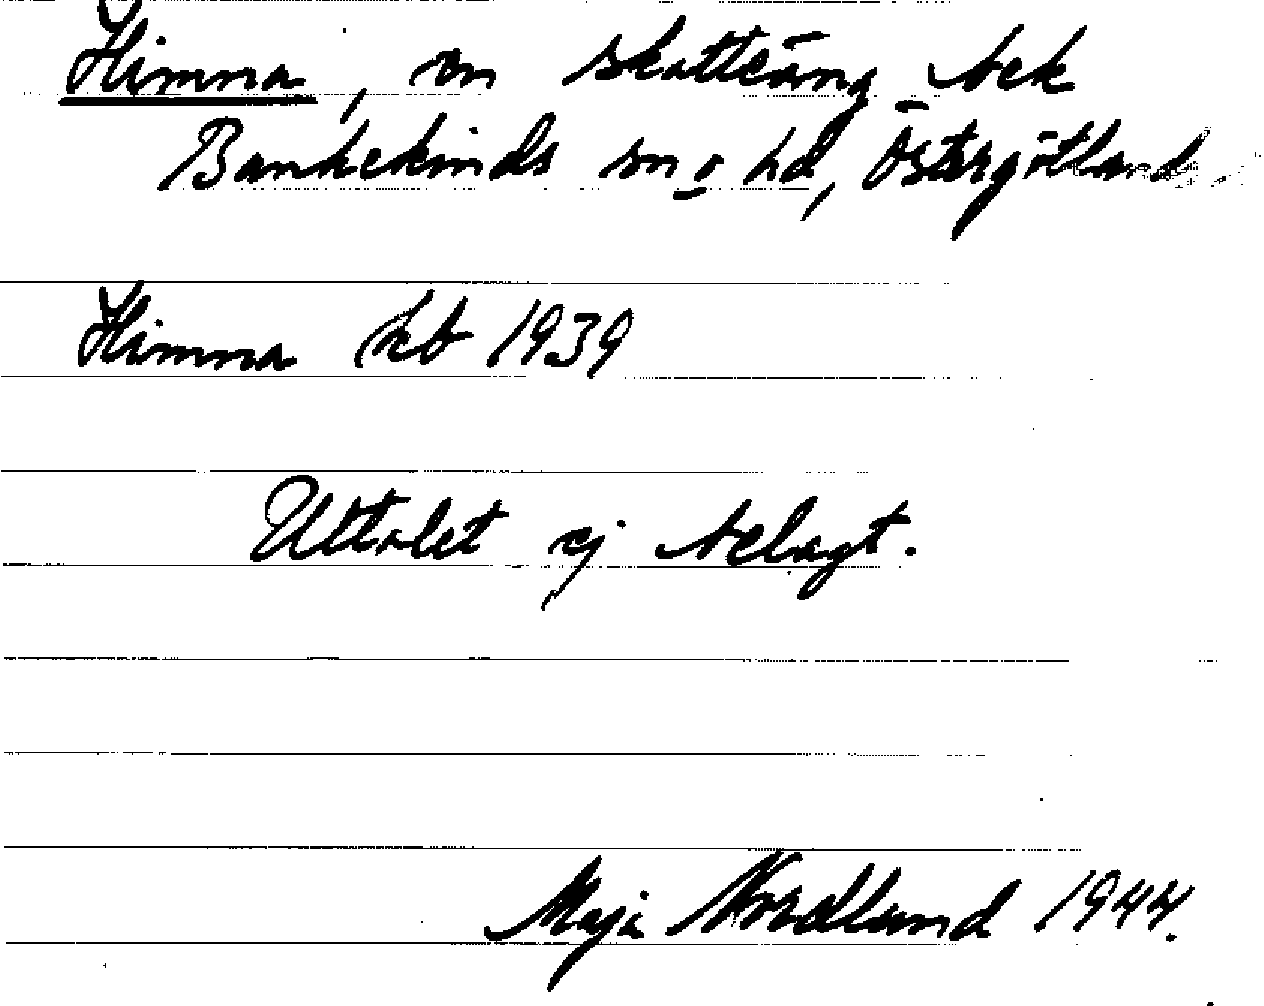 Himna, en skatteäng bek
Bankekinds sn o hd, Östergötland
Himna kb 1939
Uttalet ej belagt.
Maja Nordlund 1944.